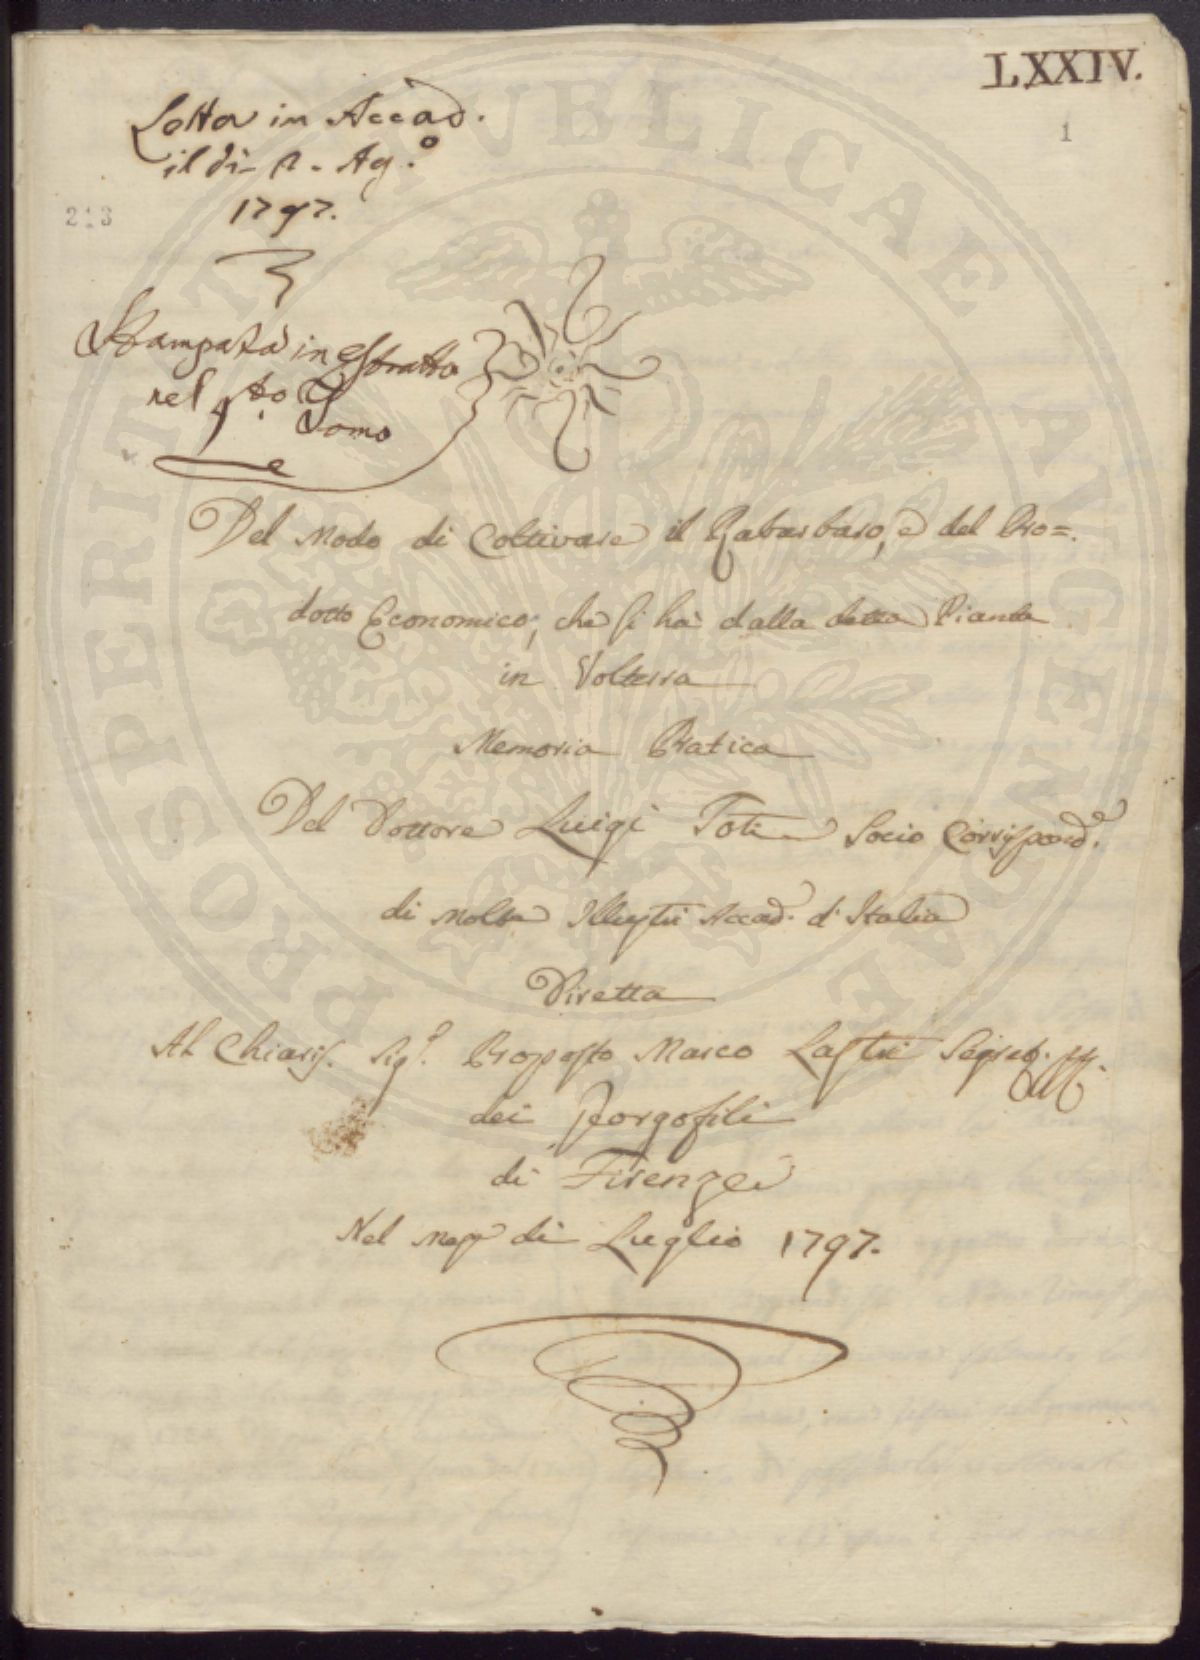 LXXIV.
1
Letta in Accad.
il dì 2. Ag.o
1797.
213
Stampata in estratto
nel 4to.
Tomo
Del Modo di Coltivare il Rabarbaro, e del Pro=
dotto Economico, che si hà dalla detta Pianta
in Volterra
Memoria Pratica
Del Dottore Luigi Toti Socio Corrispond.e
di Molte Illustri Accad. d'Italia
Diretta
Al Chiaris. Sig.e Proposto Marco Lastri Segret.
dei Georgofili
di Firenze
Nel Mese di Luglio 1797.
PROSPERITATI PVBLICAE AVGENDAE